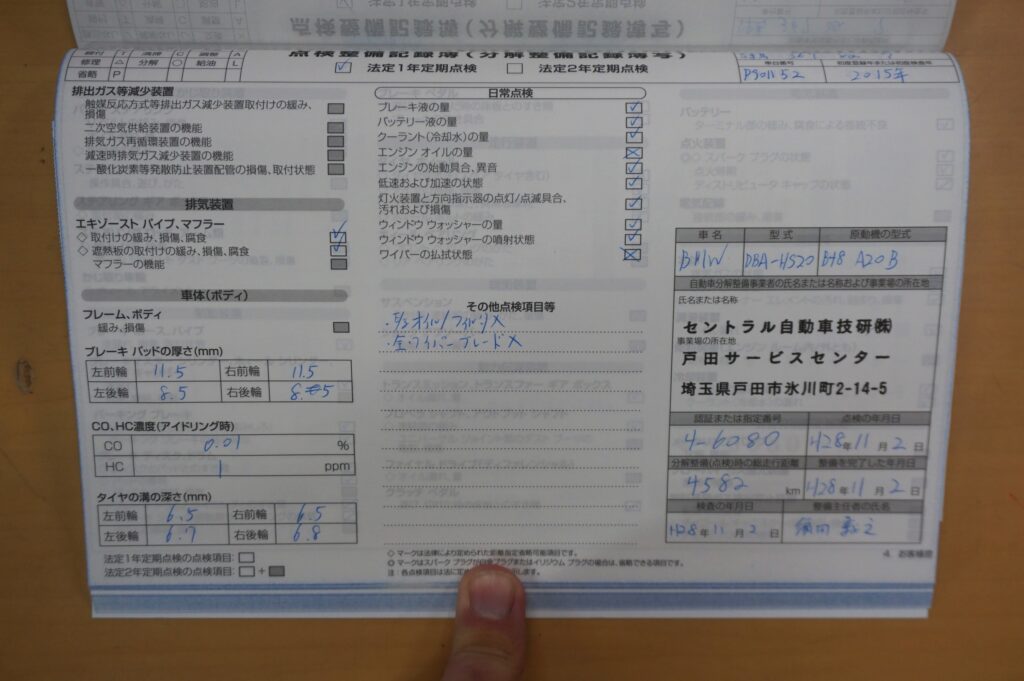 点検整備記録簿(分解整備記録簿写)
修理 △ 分解 ○ 給油 L
省略 P
法定1年定期点検 法定2年定期点検
車台番号 初度登録年または初度検査年
P901152 2015年
排出ガス等減少装置
触媒反応方式等排出ガス減少装置取付けの緩み、
損傷
二次空気供給装置の機能
排気ガス再循環装置の機能
減速時排気ガス減少装置の機能
一酸化炭素等発散防止装置配管の損傷、取付状態
排気装置
エキゾースト パイプ、マフラー
◇ 取付けの緩み、損傷、腐食
◇ 遮熱板の取付けの緩み、損傷、腐食
マフラーの機能
車体(ボディ)
フレーム、ボディ
緩み、損傷
ブレーキ パッドの厚さ(mm)
左前輪 11.5 右前輪 11.5
左後輪 8.5 右後輪 8.5
CO、HC濃度(アイドリング時)
CO 0.01 %
HC 1 ppm
タイヤの溝の深さ(mm)
左前輪 6.5 右前輪 6.5
左後輪 6.7 右後輪 6.8
法定1年定期点検の点検項目:
法定2年定期点検の点検項目: +
日常点検
ブレーキ液の量
バッテリー液の量
クーラント(冷却水)の量
エンジン オイルの量
エンジンの始動具合、異音
低速および加速の状態
灯火装置と方向指示器の点灯/点滅具合、
汚れおよび損傷
ウィンドウ ウォッシャーの量
ウィンドウ ウォッシャーの噴射状態
ワイパーの払拭状態
その他点検項目等
オイル/フィルタ X
・全ワイパーブレード X
◇ マークは法律により定められた距離指定省略可能項目です。
マークはスパーク プラグが白金プラグまたはイリジウム プラグの場合は、省略できる項目です。
注:各点検項目は法に定め
車名 型式 原動機の型式
BMW DBA-HS20 B48 A20B
自動車分解整備事業者の氏名または名称および事業場の所在地
氏名または名称
セントラル自動車技研㈱
事業場の所在地
戸田サービスセンター
埼玉県戸田市氷川町2-14-5
認証または指定番号 点検の年月日
4-6080 H28年11月2日
分解整備(点検)時の総走行距離 整備を完了した年月日
4582 km H28年11月2日
検査の年月日 整備主任者の氏名
H28年11月2日
4. お客様控